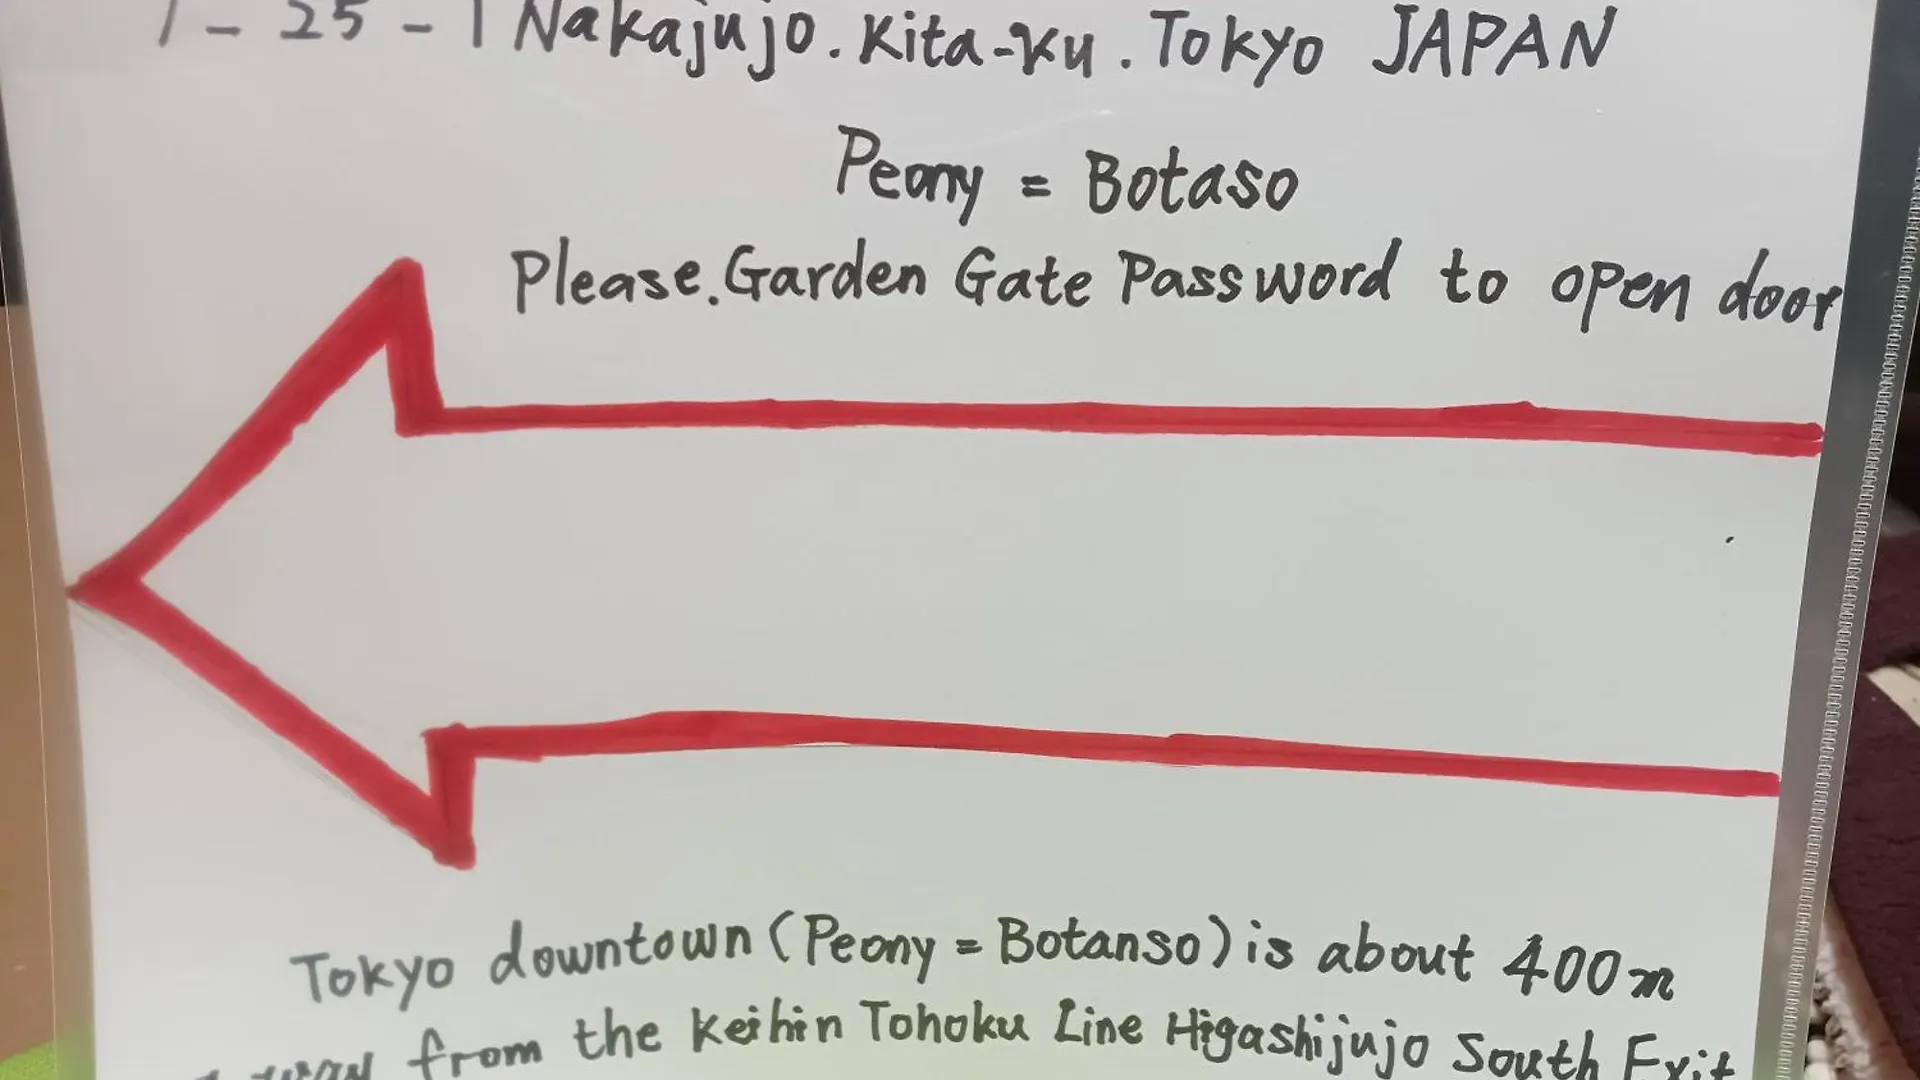 1-25-1 Nakajujo. Kita-Ku. Tokyo JAPAN
Peony = Botaso
Please. Garden Gate Password to open door
Tokyo downtown (Peony = Botanso) is about 400m
away from the Keihin Tohoku Line Higashijujo South Exit